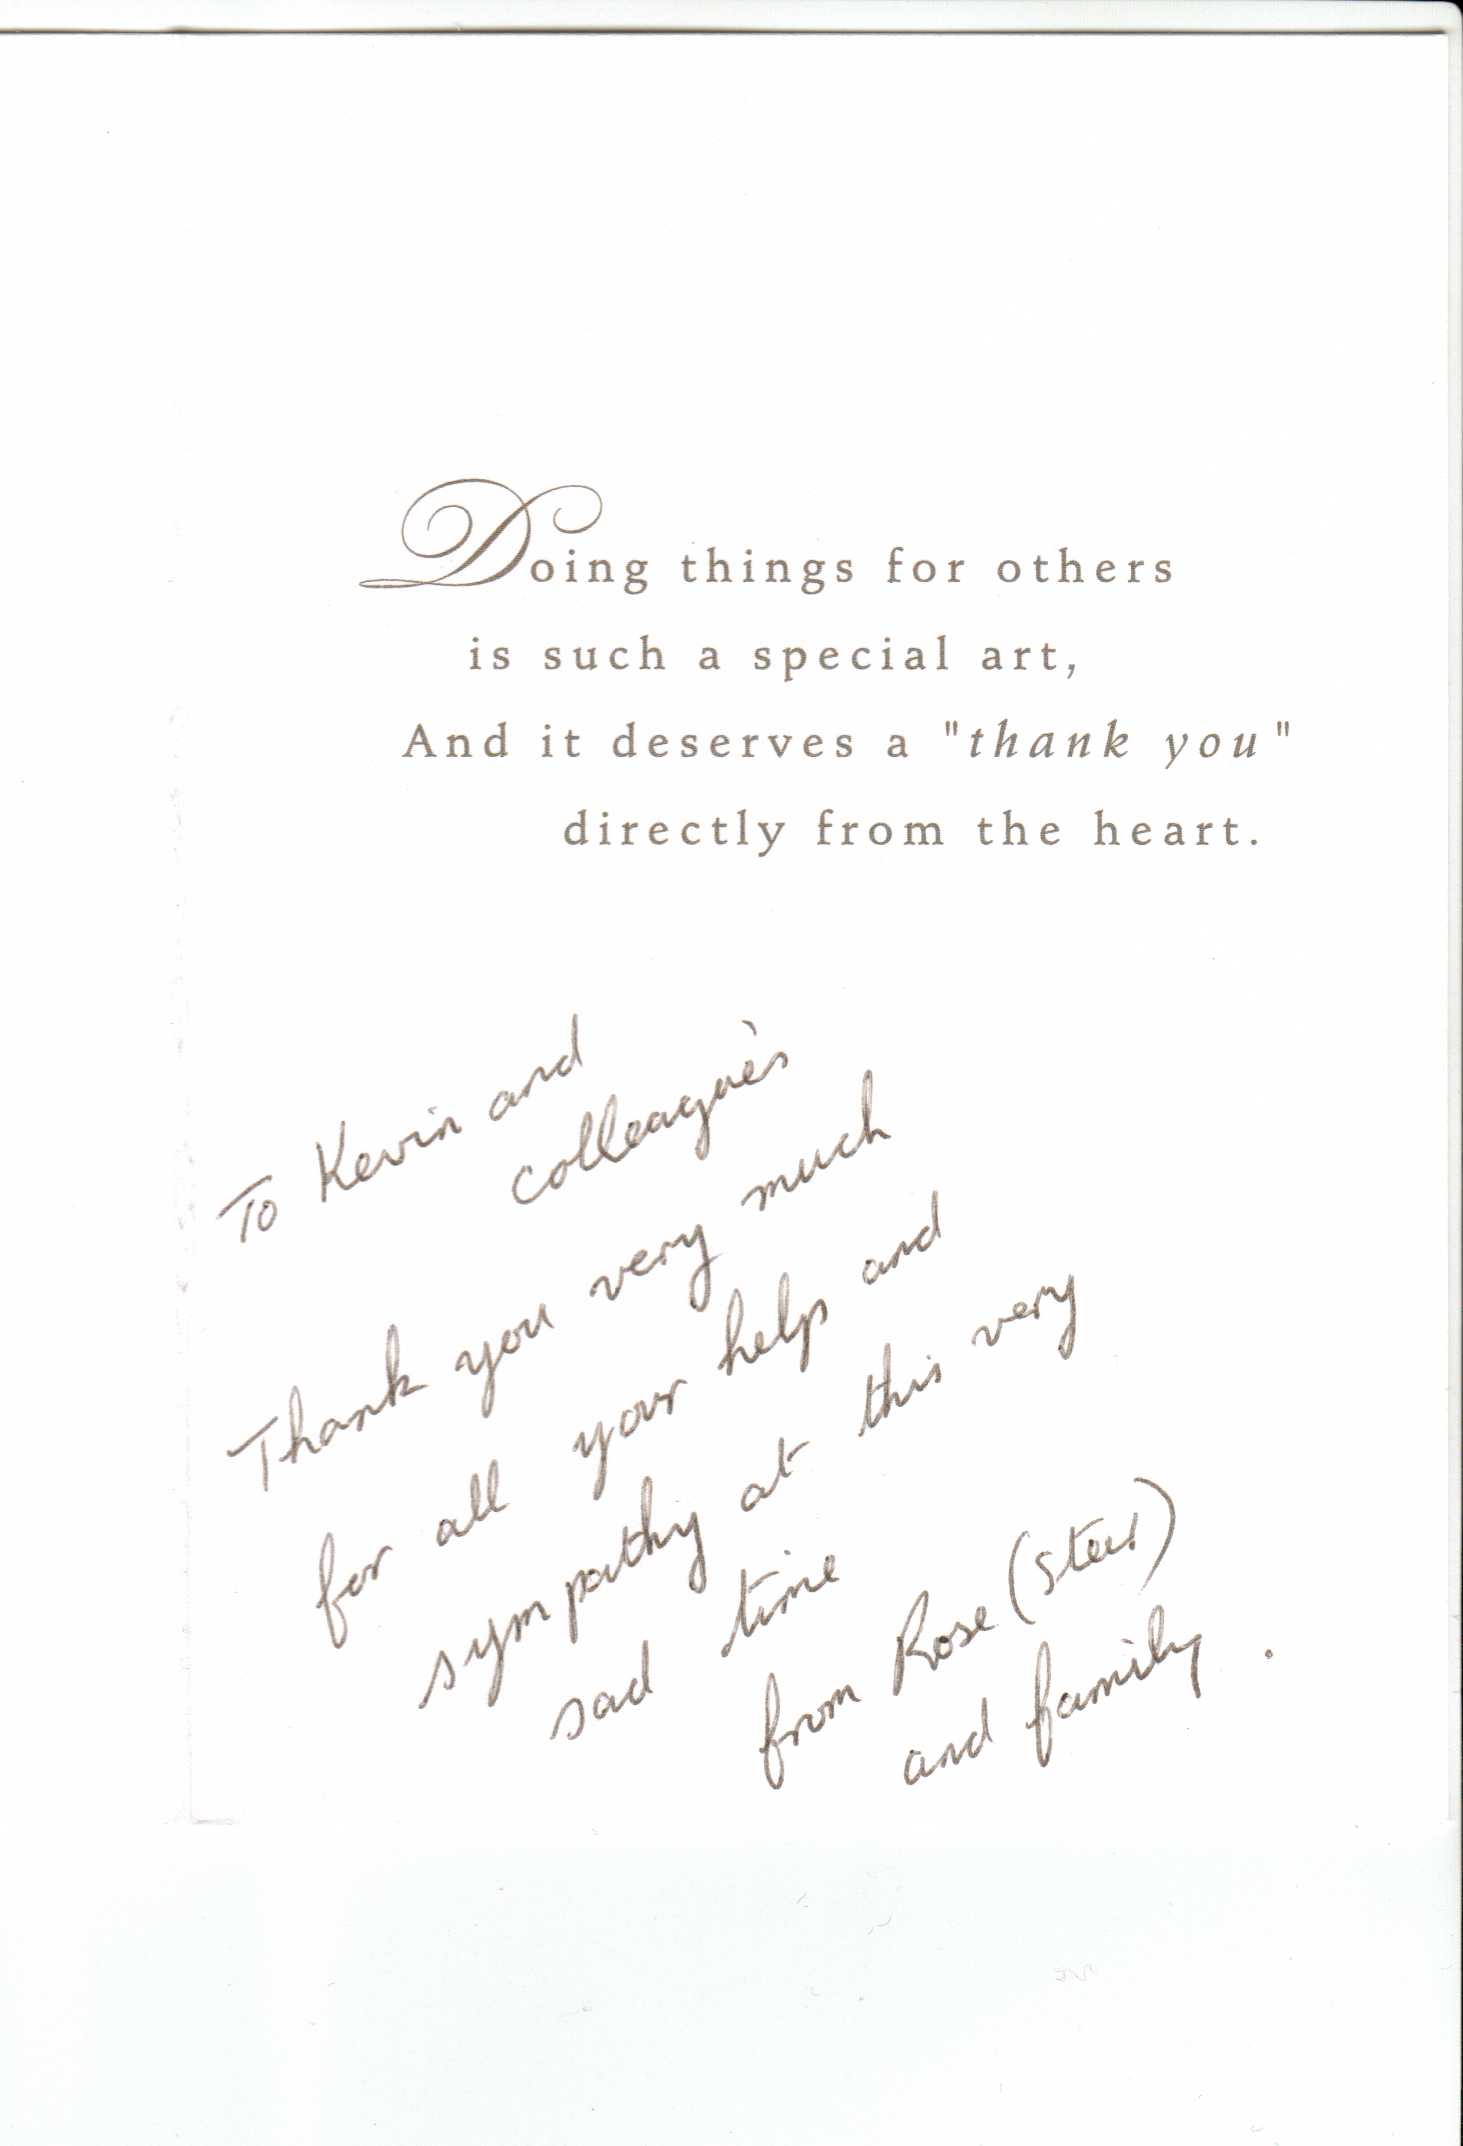 Doing things for others
is such a special art,
And it deserves a "thank you"
directly from the heart.
To Kevin and
colleague's
Thank you very much
for all your help and
sympathy at this very
sad time
from Rose (Steer)
and family.